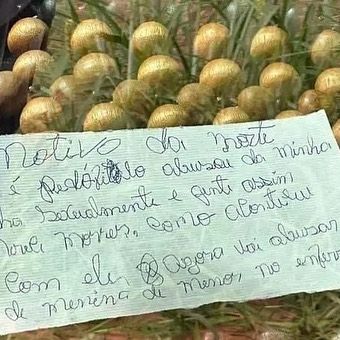 Motivo da morte
é pedófilo abusou da minha
ha sexualmente e gente assim
morrer. como aconteceu
com ele Agora vai abusar
de menina de menor no infern